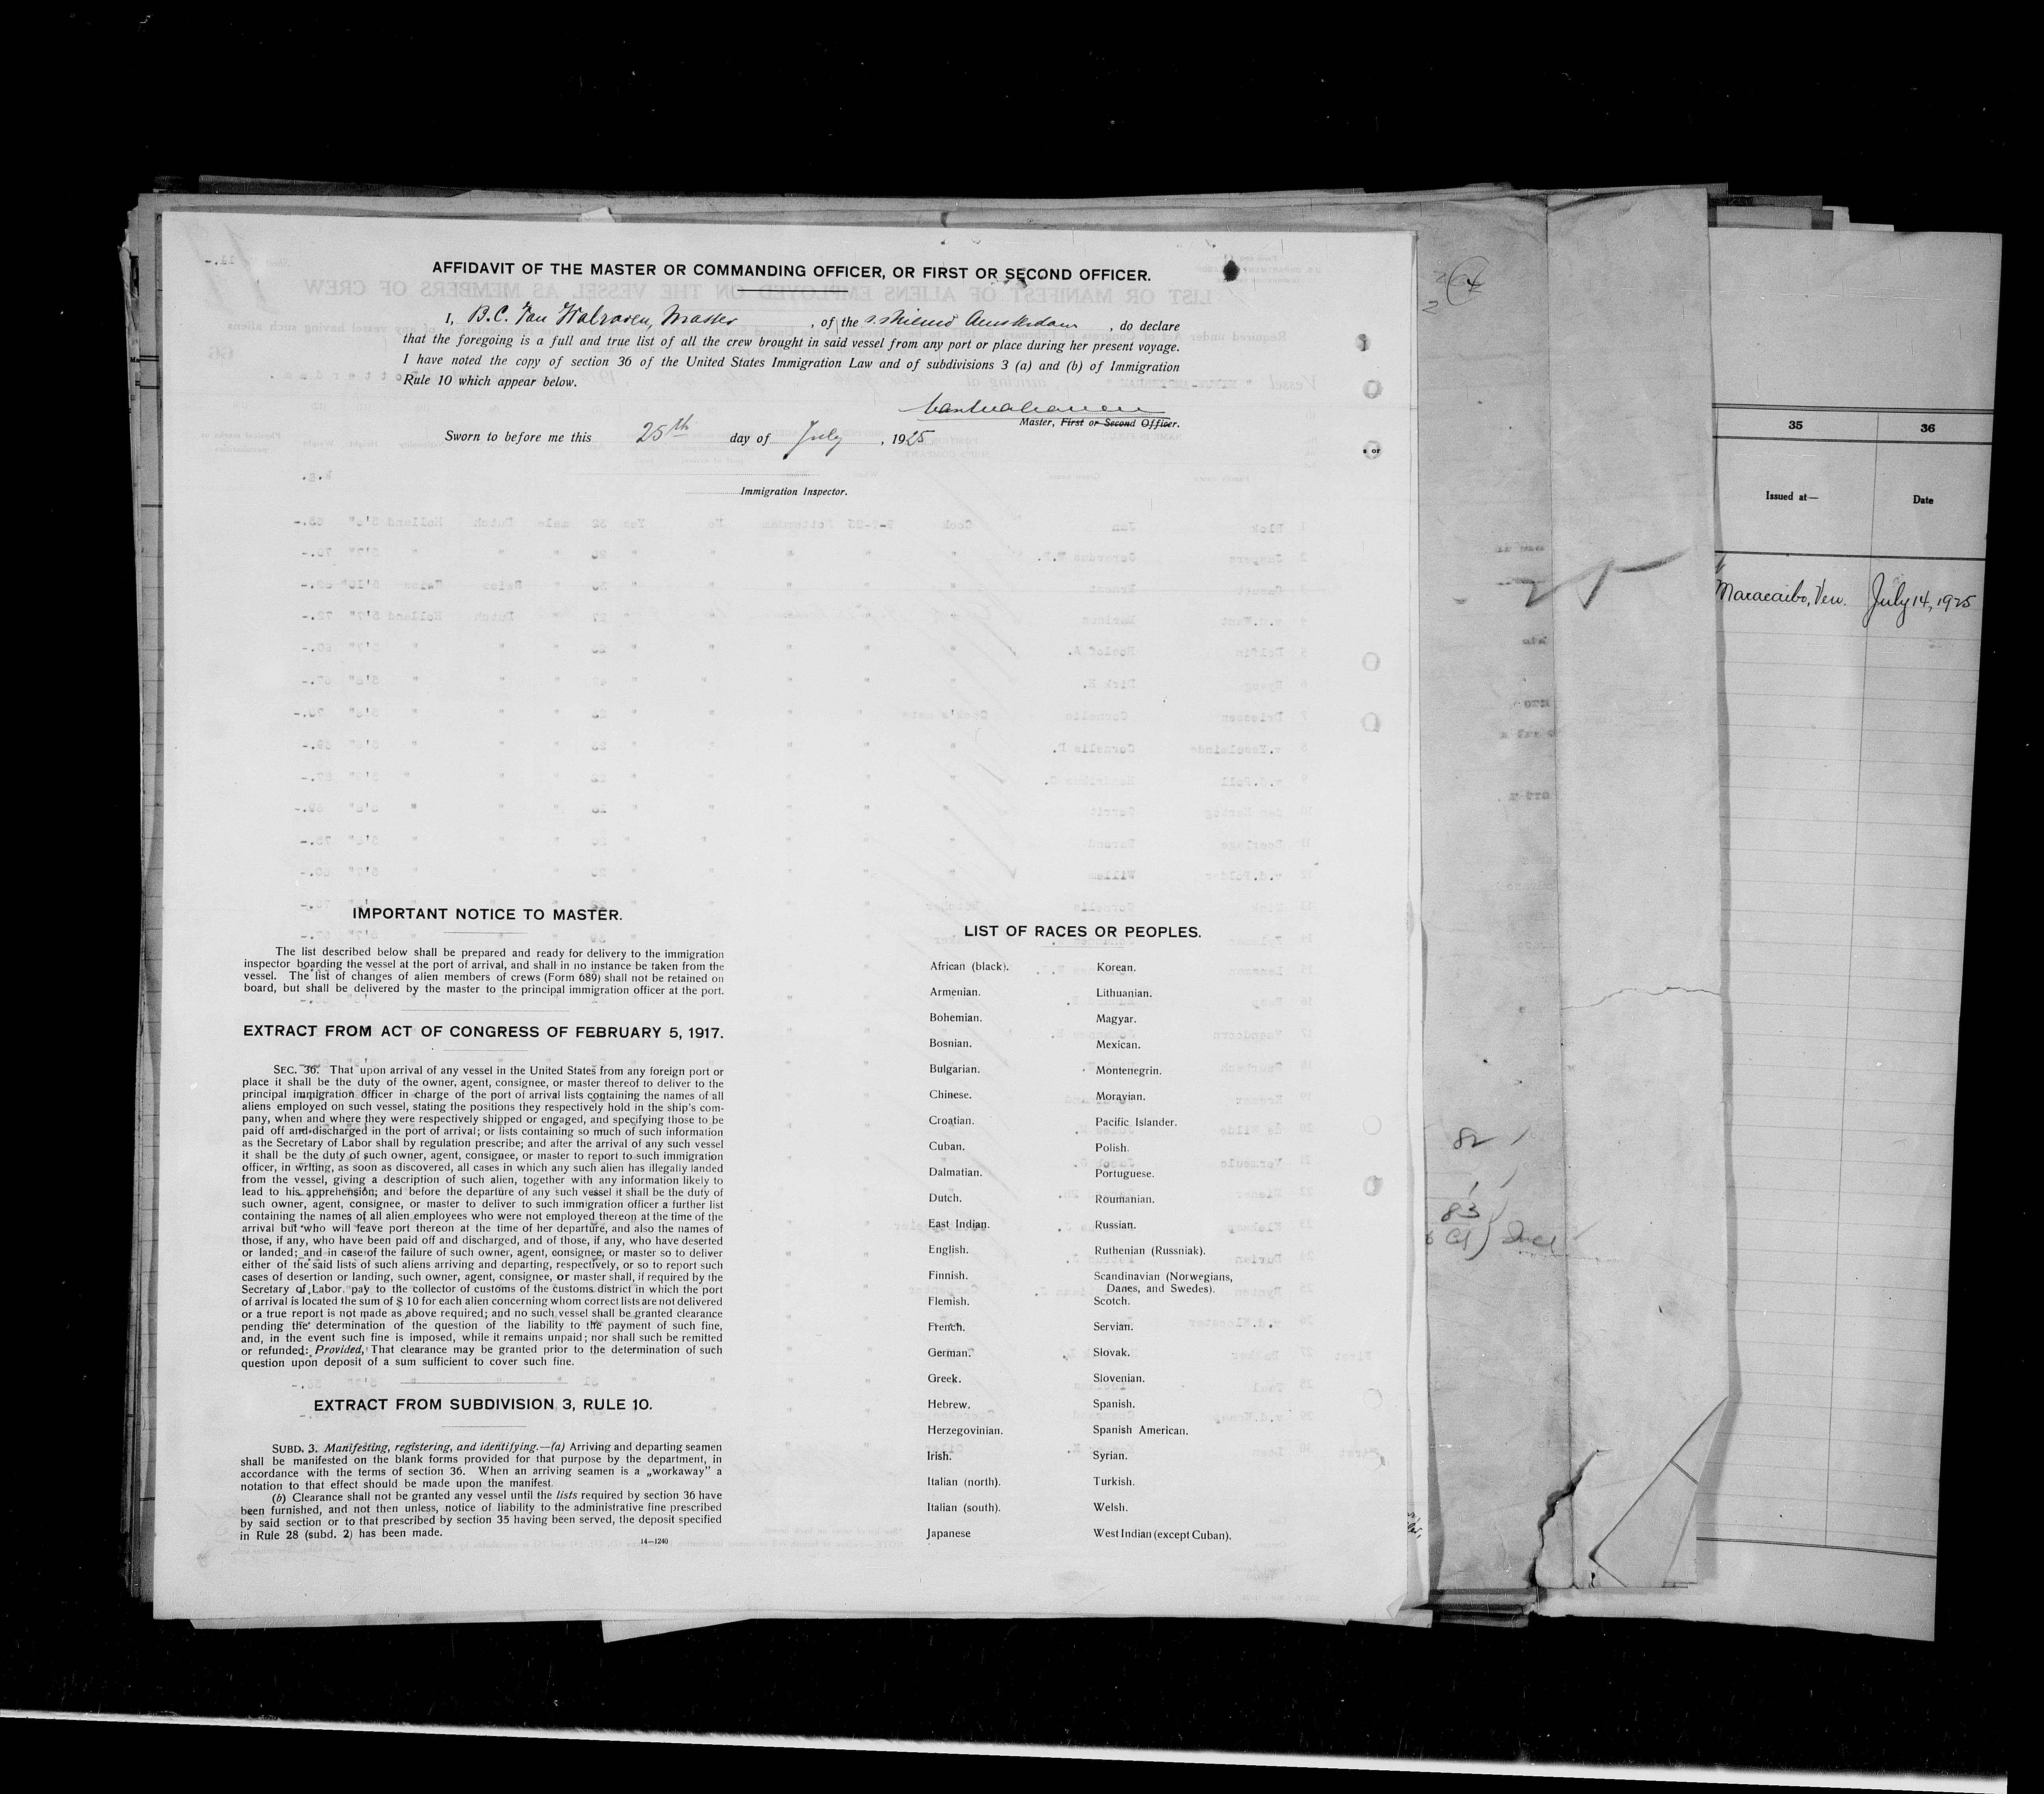 AFFIDAVIT OF THE MASTER OR COMMANDING OFFICER, OR FIRST OR SECOND OFFICER.
I, B.C. Van Walraven, Master, of the s.s. Nieuw Amsterdam, do declare
that the foregoing is a full and true list of all the crew brought in said vessel from any port or place during her present voyage.
I have noted the copy of section 36 of the United States Immigration Law and of subdivisions 3 (a) and (b) of Immigration
Rule 10 which appear below.
Master, First or Second Officer.
Sworn to before me this 25th day of July, 1925
Immigration Inspector.
IMPORTANT NOTICE TO MASTER.
The list described below shall be prepared and ready for delivery to the immigration
inspector boarding the vessel at the port of arrival, and shall in no instance be taken from the
vessel. The list of changes of alien members of crews (Form 689) shall not be retained on
board, but shall be delivered by the master to the principal immigration officer at the port.
EXTRACT FROM ACT OF CONGRESS OF FEBRUARY 5, 1917.
SEC. 36. That upon arrival of any vessel in the United States from any foreign port or
place it shall be the duty of the owner, agent, consignee, or master thereof to deliver to the
principal immigration officer in charge of the port of arrival lists containing the names of all
aliens employed on such vessel, stating the positions they respectively hold in the ship's com-
pany, when and where they were respectively shipped or engaged, and specifying those to be
paid off and discharged in the port of arrival; or lists containing so much of such information
as the Secretary of Labor shall by regulation prescribe; and after the arrival of any such vessel
it shall be the duty of such owner, agent, consignee, or master to report to such immigration
officer, in writing, as soon as discovered, all cases in which any such alien has illegally landed
from the vessel, giving a description of such alien, together with any information likely to
lead to his apprehension; and before the departure of any such vessel it shall be the duty of
such owner, agent, consignee, or master to deliver to such immigration officer a further list
containing the names of all alien employees who were not employed thereon at the time of the
arrival but who will leave port thereon at the time of her departure, and also the names of
those, if any, who have been paid off and discharged, and of those, if any, who have deserted
or landed; and in case of the failure of such owner, agent, consignee, or master so to deliver
either of the said lists of such aliens arriving and departing, respectively, or so to report such
cases of desertion or landing, such owner, agent, consignee, or master shall, if required by the
Secretary of Labor, pay to the collector of customs of the customs district in which the port
of arrival is located the sum of $ 10 for each alien concerning whom correct lists are not delivered
or a true report is not made as above required; and no such vessel shall be granted clearance
pending the determination of the question of the liability to the payment of such fine,
and, in the event such fine is imposed, while it remains unpaid; nor shall such be remitted
or refunded: Provided, That clearance may be granted prior to the determination of such
question upon deposit of a sum sufficient to cover such fine.
EXTRACT FROM SUBDIVISION 3, RULE 10.
SUBD. 3. Manifesting, registering, and identifying.—(a) Arriving and departing seamen
shall be manifested on the blank forms provided for that purpose by the department, in
accordance with the terms of section 36. When an arriving seamen is a „workaway" a
notation to that effect should be made upon the manifest.
(b) Clearance shall not be granted any vessel until the lists required by section 36 have
been furnished, and not then unless, notice of liability to the administrative fine prescribed
by said section or to that prescribed by section 35 having been served, the deposit specified
in Rule 28 (subd. 2) has been made.
14—1240
LIST OF RACES OR PEOPLES.
African (black). Korean.
Armenian. Lithuanian.
Bohemian. Magyar.
Bosnian. Mexican.
Bulgarian. Montenegrin.
Chinese. Moravian.
Croatian. Pacific Islander.
Cuban. Polish.
Dalmatian. Portuguese.
Dutch. Roumanian.
East Indian. Russian.
English. Ruthenian (Russniak).
Finnish. Scandinavian (Norwegians,
Danes, and Swedes).
Flemish. Scotch.
French. Servian.
German. Slovak.
Greek. Slovenian.
Hebrew. Spanish.
Herzegovinian. Spanish American.
Irish. Syrian.
Italian (north). Turkish.
Italian (south). Welsh.
Japanese West Indian (except Cuban).
82
83
35 36
Issued at— Date
Maracaibo, Ven. July 14, 1925